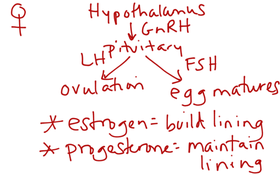 Hypothalamus
GnRH
Pituitary
LH FSH
ovulation egg matures
* estrogen = build lining
* progesterone = maintain
lining